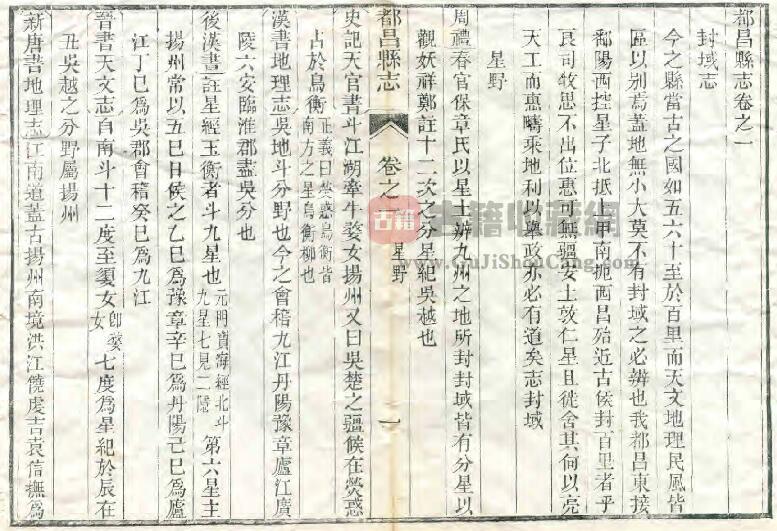 都昌縣志卷之一
封域志
今之縣當古之國如五六十至於百里而天文地理民風皆
區以別焉蓋地無小大莫不有封域之必辨也我都昌東接
鄱陽西控星子北抵 甲南扼西昌殆近古侯封百里者乎
民司牧思不出位惠可無疆安土敦仁星且徙舍其何以亮
天工而惠疇乘地利以興政亦必有道矣志封域
星野
周禮春官保章氏以星土辨九州之地所封封域皆有分星以
觀妖祥鄭註十二次之分星紀吳越也
都昌縣志
卷之一
星野
一
史記天官書斗江湖牽牛婺女揚州又曰吳楚之疆候在熒惑
占於鳥衡正義曰熒惑鳥衡皆南方之星鳥衡柳也
漢書地理志吳地斗分野也今之會稽九江丹陽豫章廬江廣
陵六安臨淮郡盡吳分也
後漢書註星經玉衡者斗九星也元門寶海經北斗九星七見二隱第六星主
揚州常以五巳日候之乙巳為豫章辛巳為丹陽己巳為廬
江丁巳為吳郡會稽癸巳為九江
晉書天文志自南斗十二度至須女即婺女七度為星紀於辰在
丑吳越之分野屬揚州
新唐書地理志江南道蓋古揚州南境洪江饒虔吉袁信撫為
古籍
古籍收藏網
www.GuJiShouCang.com